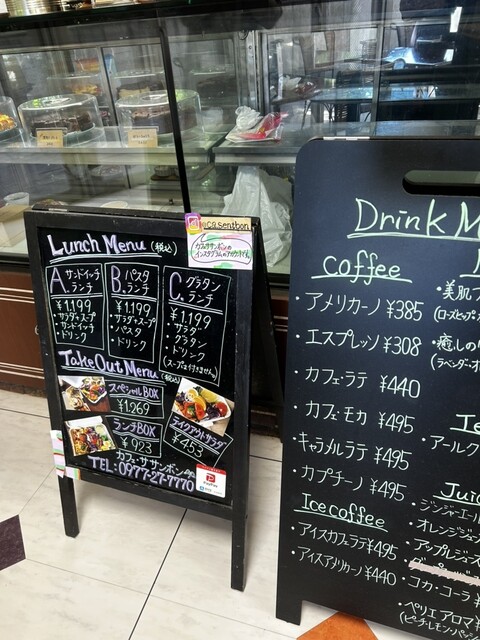 ca.sentbon
カフェササンボンの
インスタグラムのアカウントです。
Lunch Menu (税込)
A. サンドイッチ
ランチ
¥1.199
・サラダ&スープ
・サンドイッチ
・ドリンク
B. パスタ
ランチ
¥1.199
・サラダ&スープ
・パスタ
・ドリンク
C. グラタン
ランチ
¥1.199
・サラダ
・グラタン
・ドリンク
(スープは付きません)
TakeOut Menu (税込)
スペシャルBOX
¥1.269
ランチBOX
¥923
テイクアウトサラダ
¥453
カフェ・ササンボン
TEL: 0977-27-7770
PayPay
Drink M
coffee
・アメリカーノ ¥385
・エスプレッソ ¥308
・カフェ・ラテ ¥440
・カフェ・モカ ¥495
・キャラメルラテ ¥495
・カプチーノ ¥495
Ice coffee
・アイスカフェラテ ¥495
・アイスアメリカーノ ¥440
・美肌
(ローズヒップ
・癒しの
(ラベンダー・オ
Ice
・アールク
Juic
・ジンジャーエール
・オレンジジュー
・アップルジュース
・コカ・コーラ ¥
・ペリエ アロマ ¥
(ピーチ・レモン・パッシ